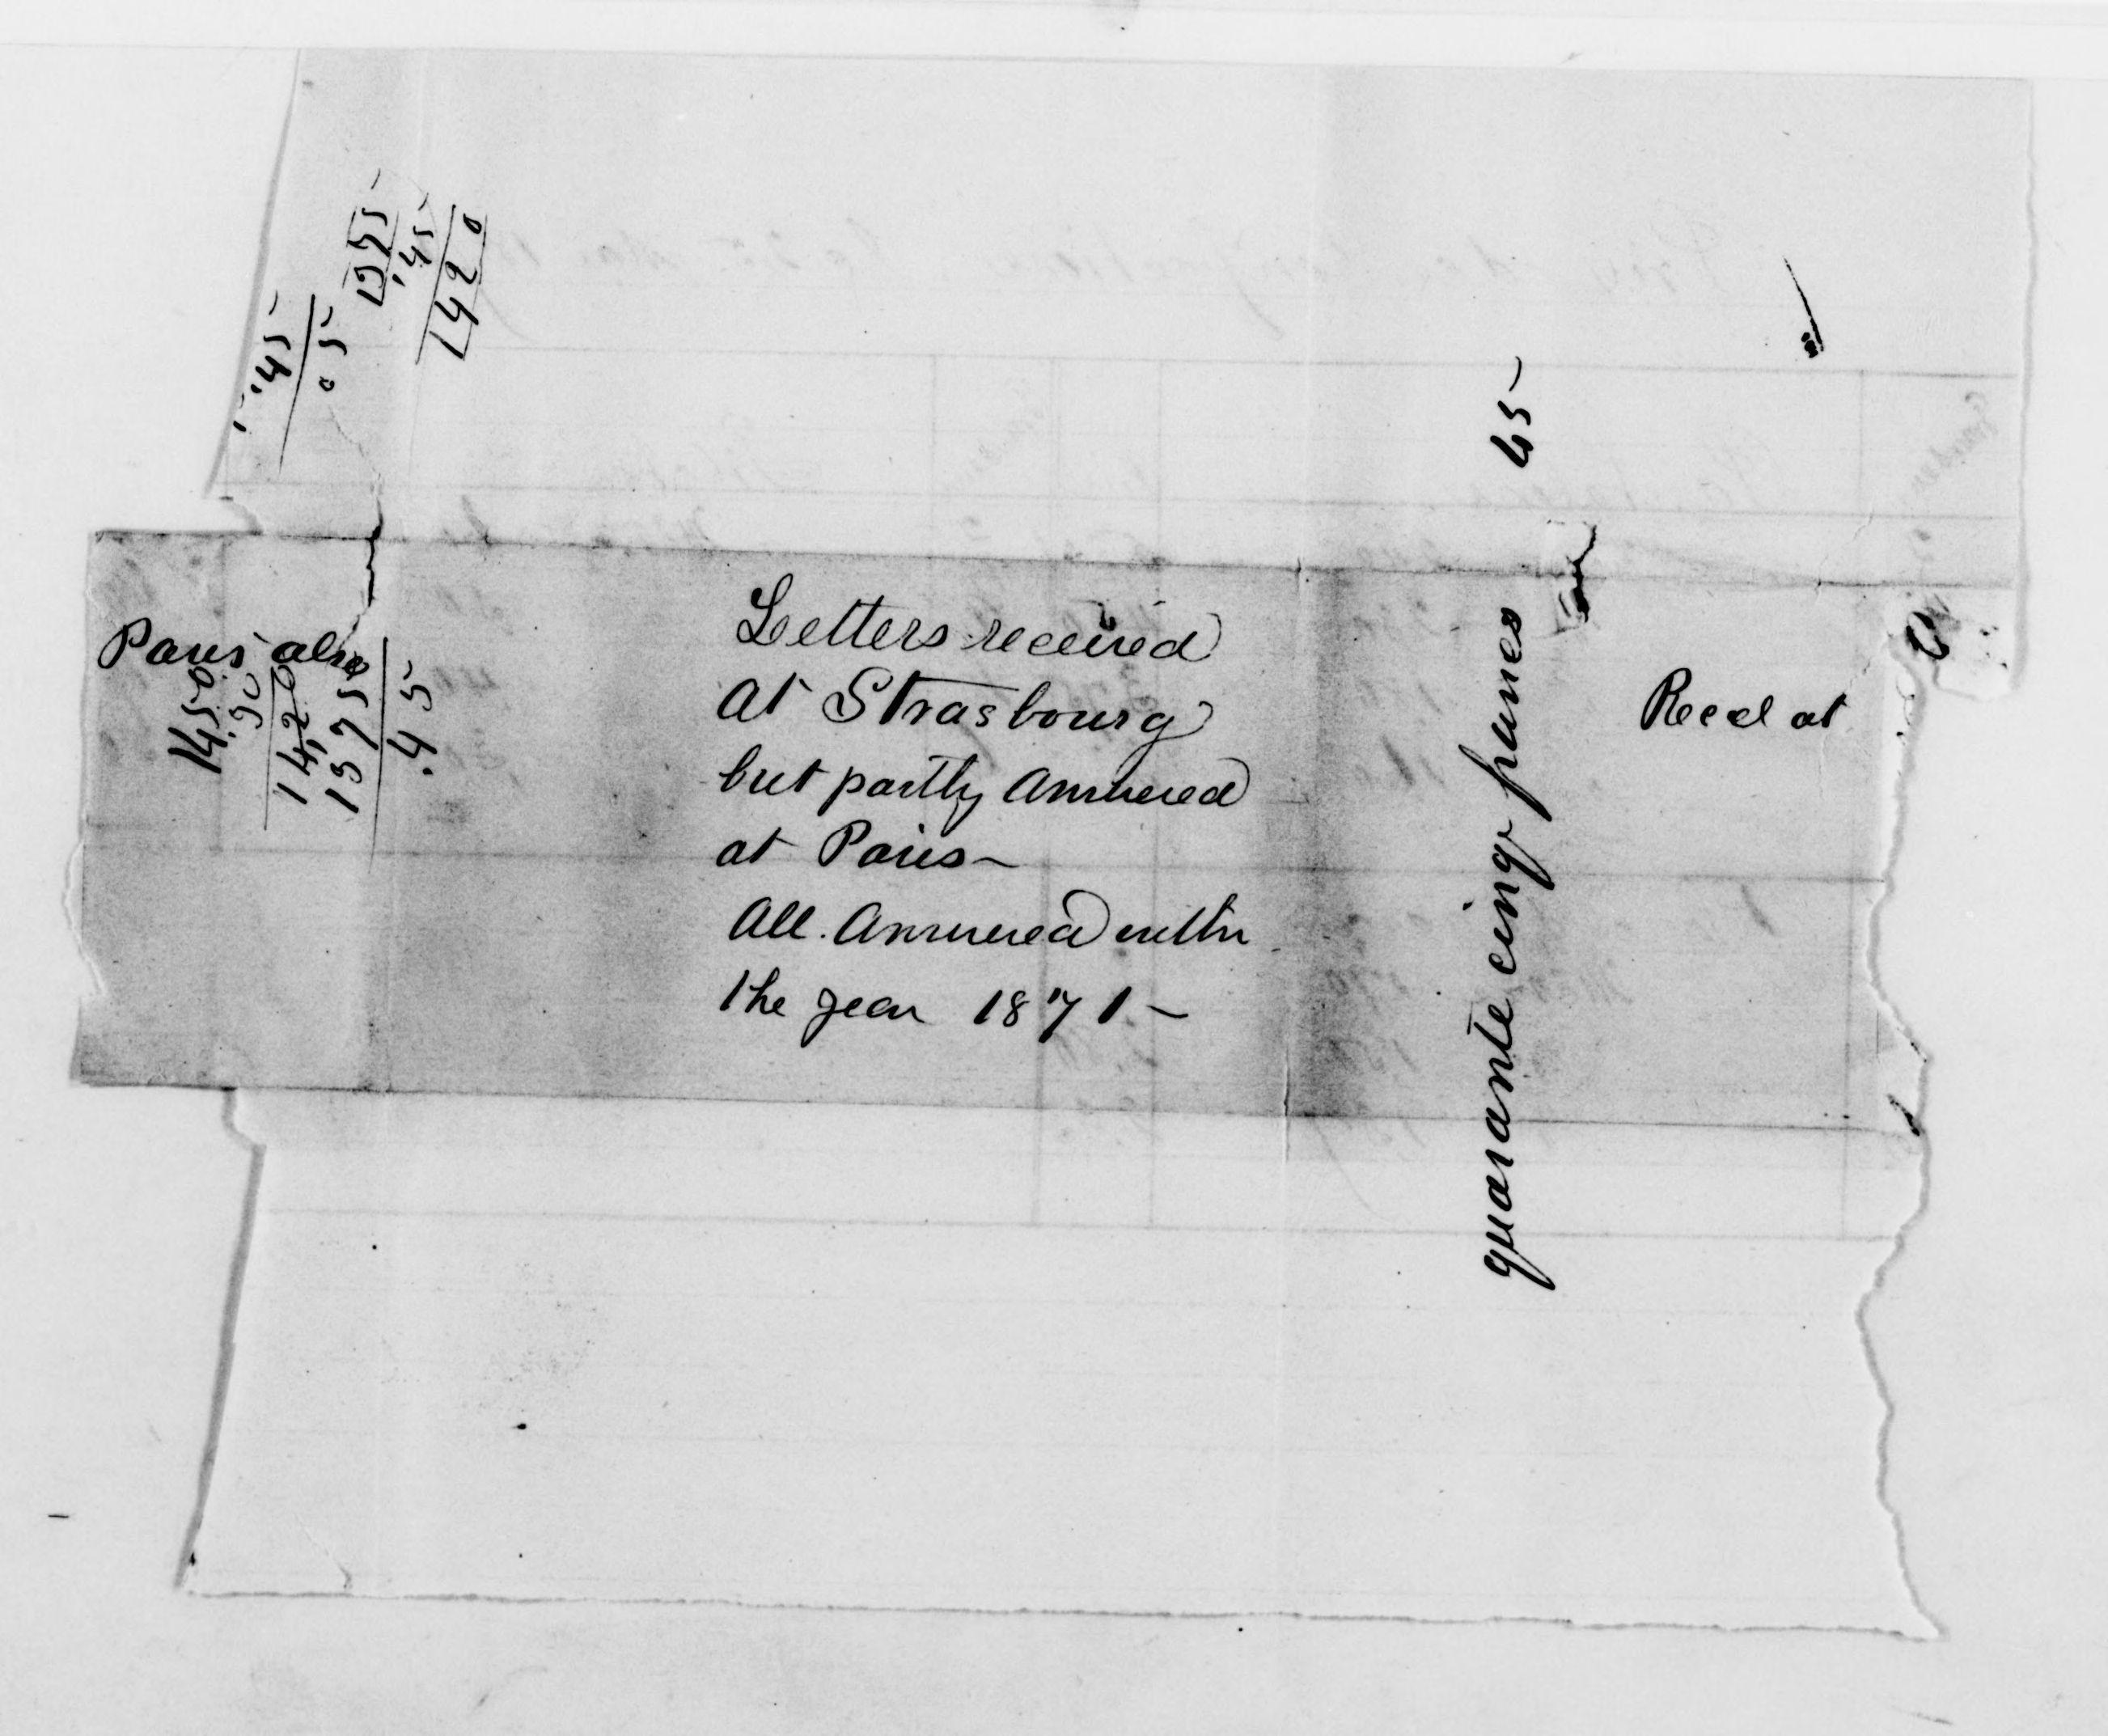 Letters received
at Strasbourg
but partly Answered
at Paris
All Answered within
the year 1871
quarante cinq francs 45
Recd at
Paris also
1450
1420
1395
45
1395
45
1420
45
05